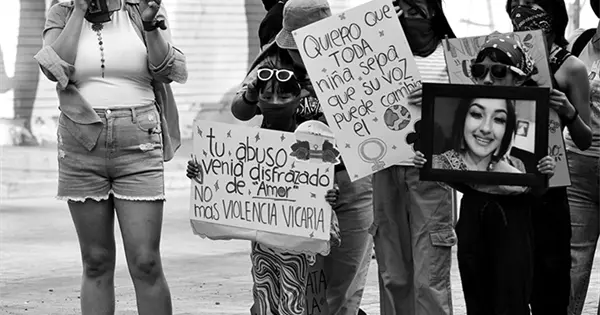 Quiero que
TODA
niña sepa
que su voz
puede cambiar
el
tu abuso
venia disfrazado
de "Amor"
No
mas VIOLENCIA VICARIA